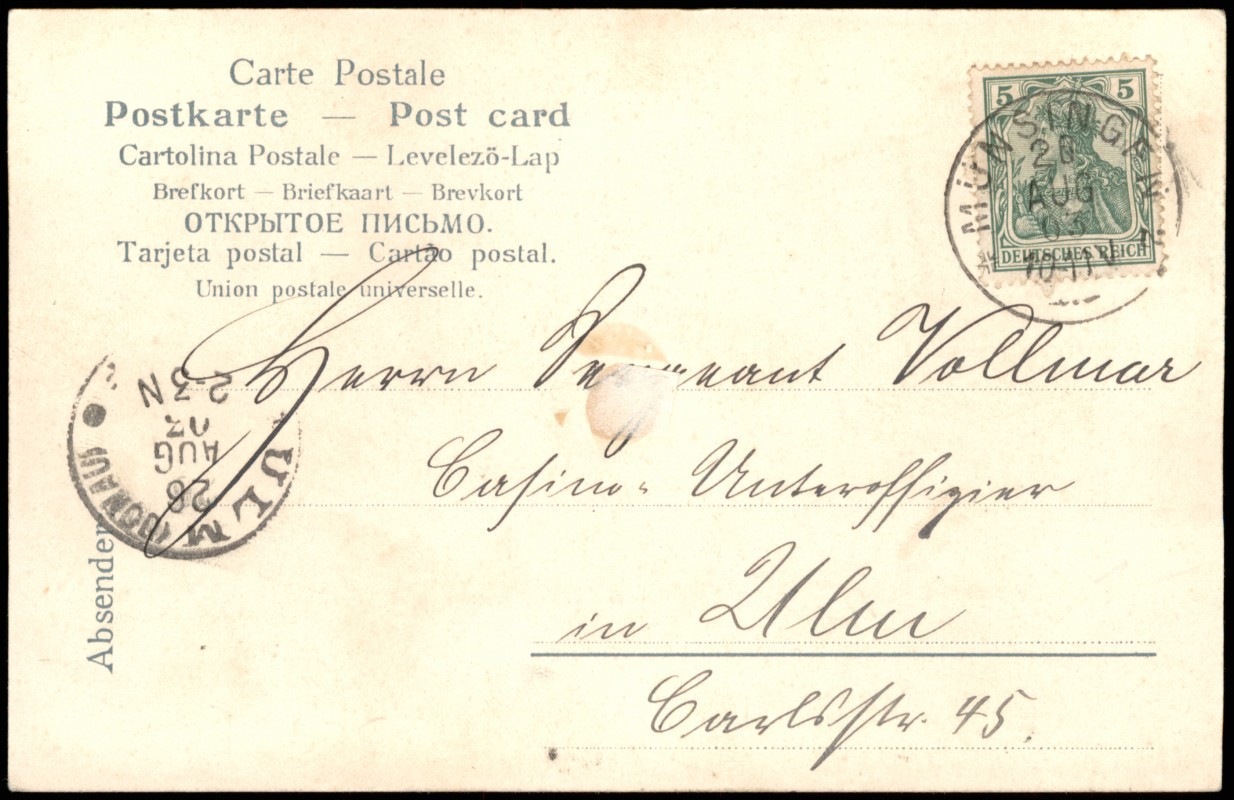 Carte Postale
Postkarte — Post card
Cartolina Postale — Levelezö-Lap
Brefkort — Briefkaart — Brevkort
ОТКРЫТОЕ ПИСЬМО.
Tarjeta postal — Cartão postal.
Union postale universelle.
5 5
DEUTSCHES REICH
MÜNSINGEN
AUG
03
10-11 V
Herrn Sergeant Vollmar
Casino-Unteroffizier
in Ulm
Carlsstr. 45.
ULM (DONAU)
26
AUG
03
2-3 N
Absender